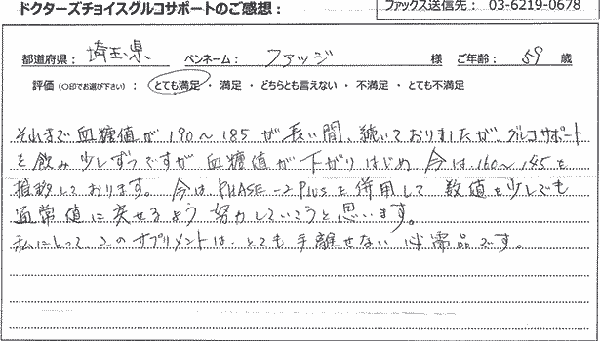 ドクターズチョイスグルコサポートのご感想： ファックス送信先： 03-6219-0678
都道府県： 埼玉県 ペンネーム： ファッジ 様 ご年齢： 59 歳
評価（○印でお選び下さい）： とても満足 ・ 満足 ・ どちらとも言えない ・ 不満足 ・ とても不満足
それまで血糖値が190〜185が長い間、続いておりましたが、グルコサポート
を飲み少しずつですが血糖値が下がりはじめ今は160〜145を
推移しております。今はPHASE-2 Plusを併用して数値を少しでも
通常値に戻せるよう努力していこうと思います。
私にとって、このサプリメントは、とても手離せない必需品です。